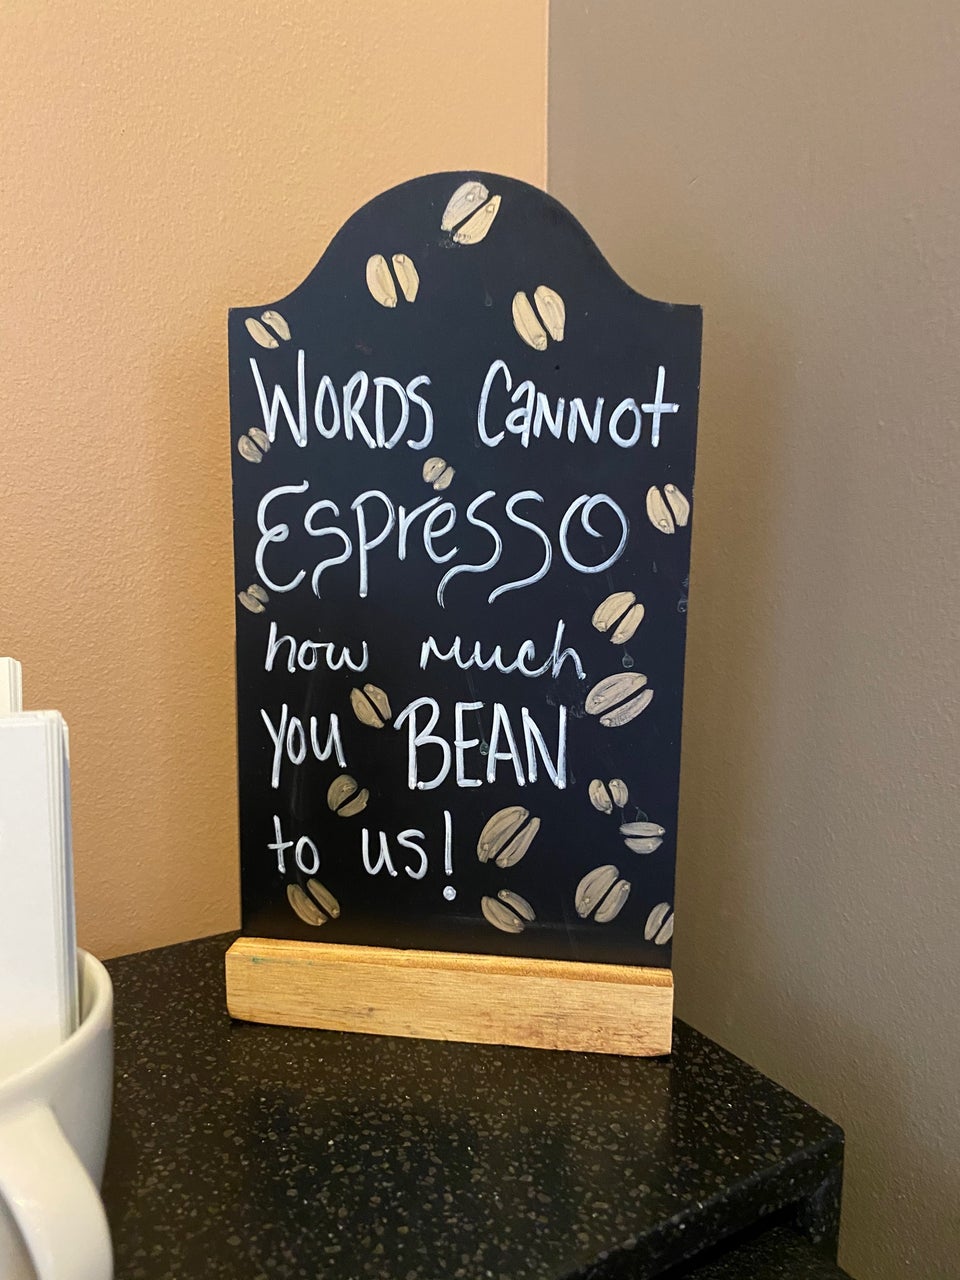 WORDS CANNOT
Espresso
how much
you BEAN
to us!